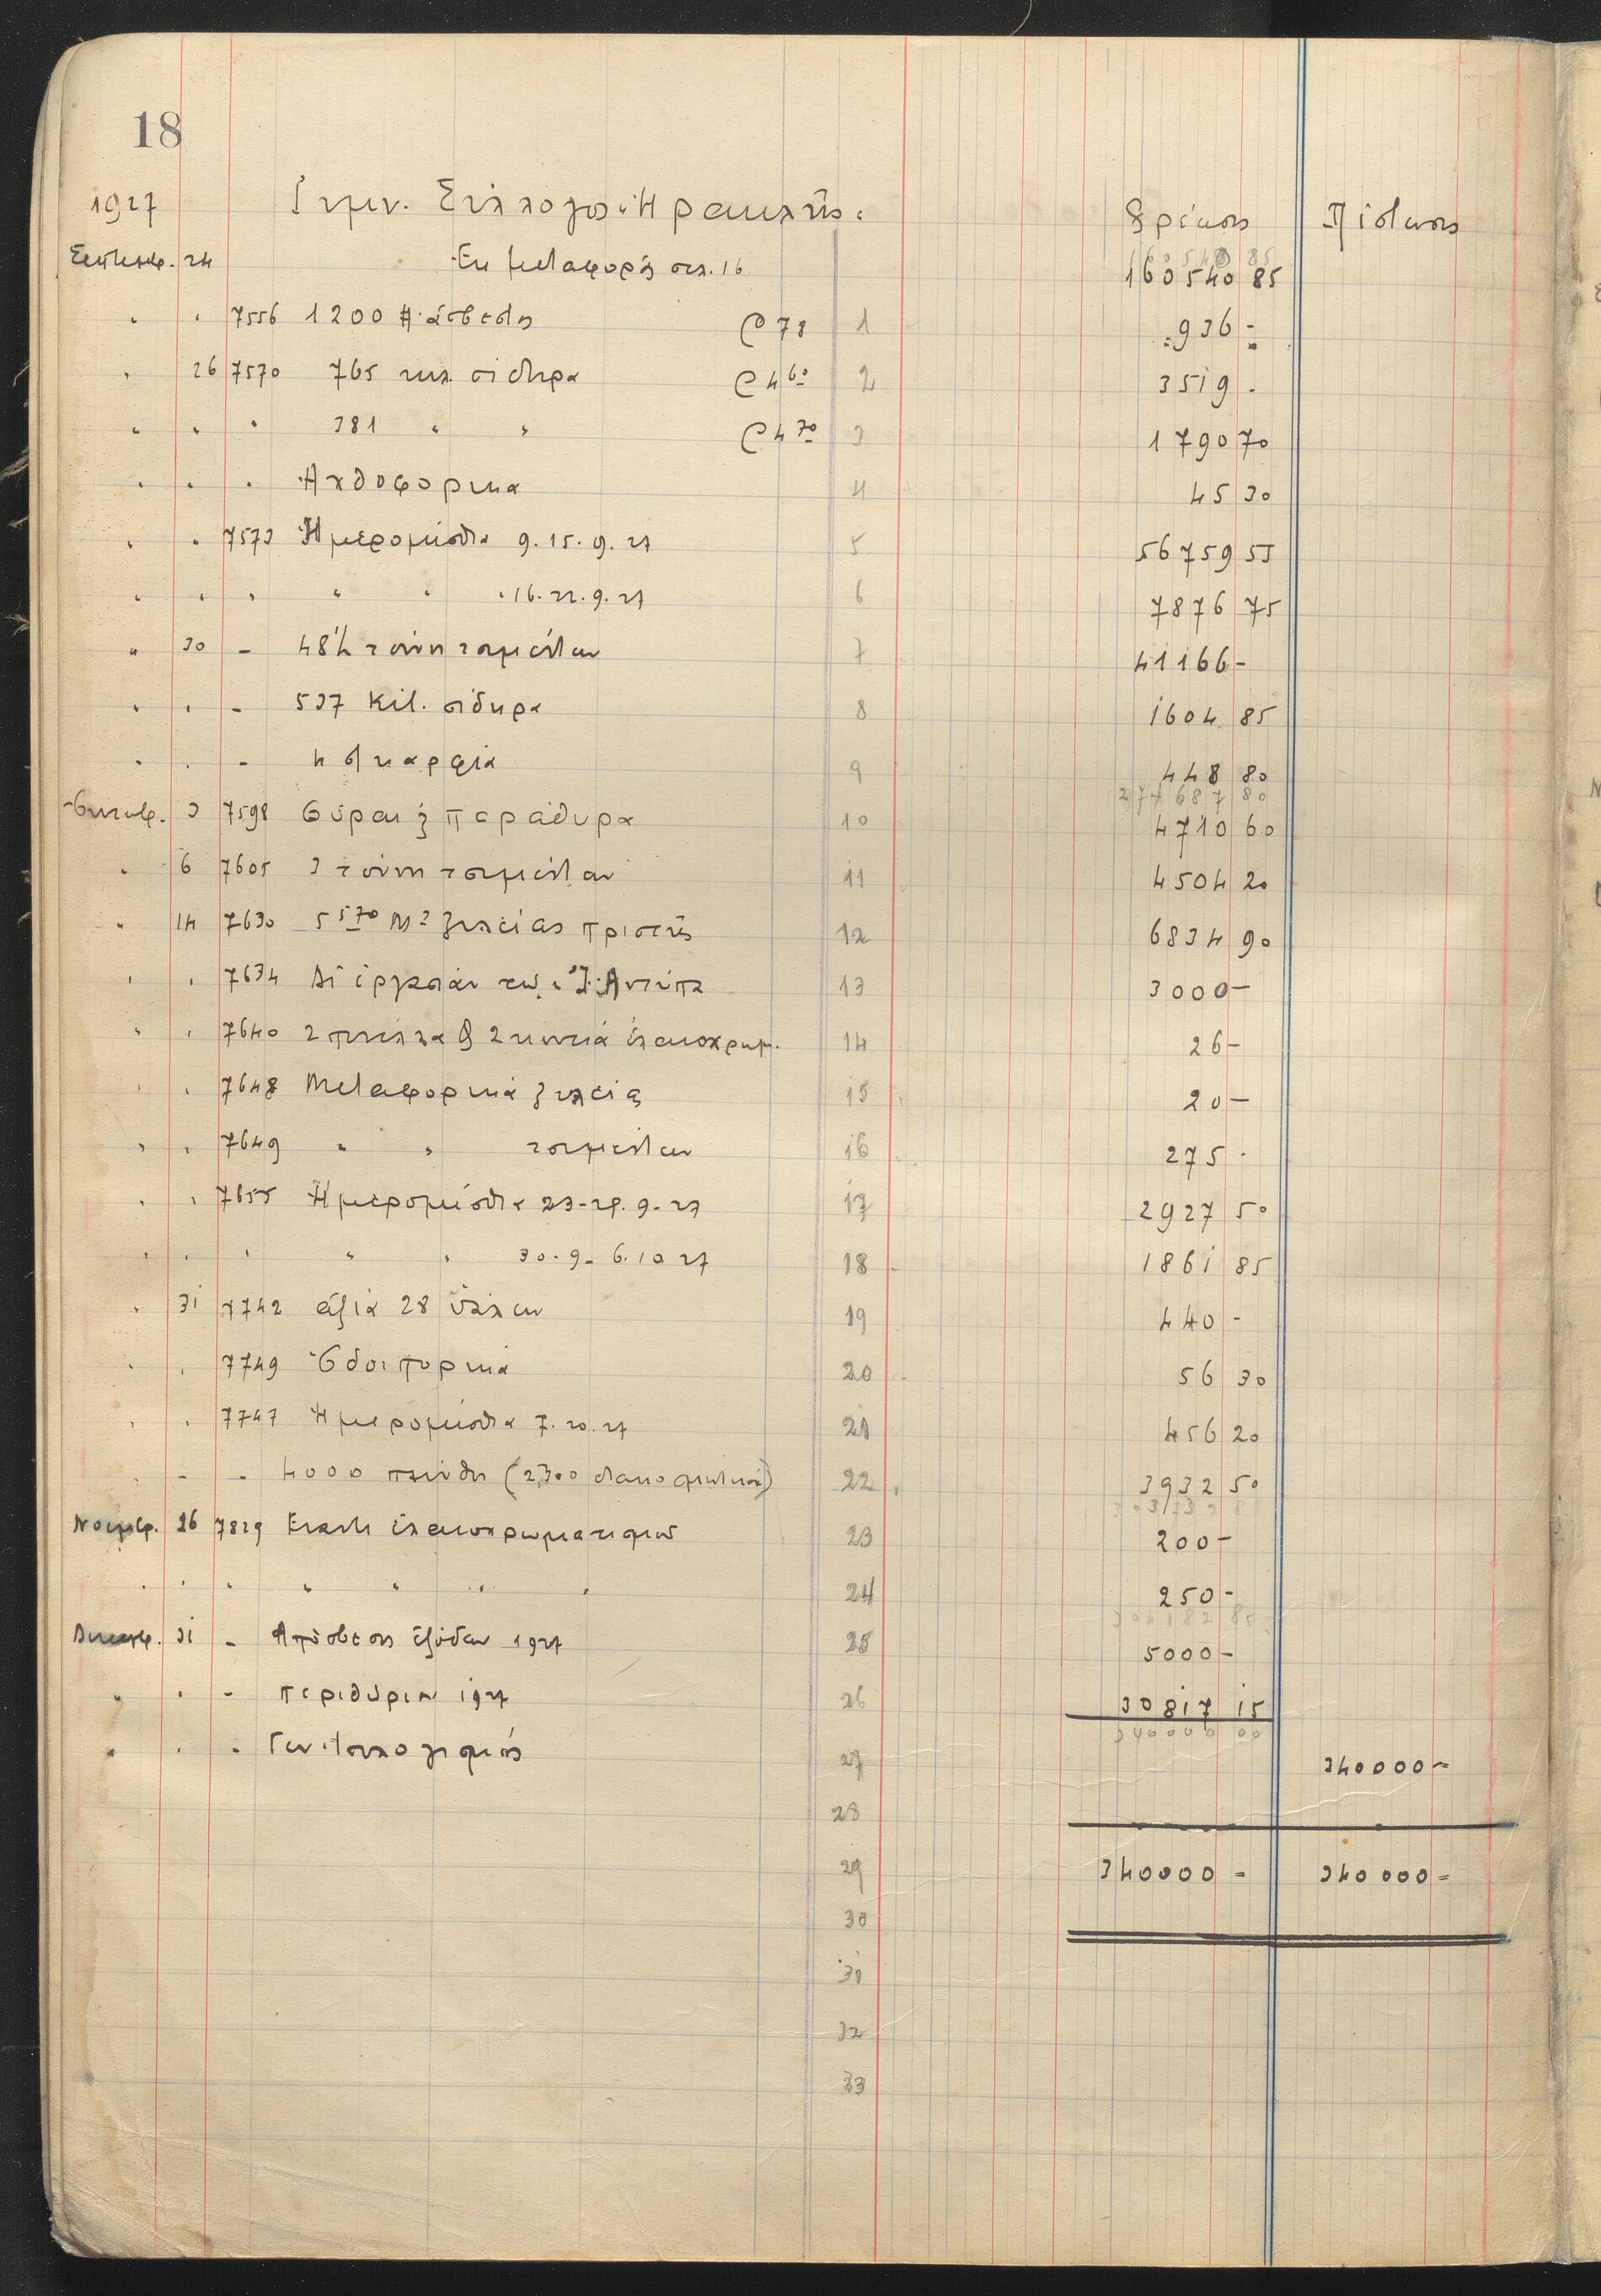 18
1927 Γυμν. Σύλλογος "Ηρακλῆς" Χρέωσις Πίστωσις
Σεπτεμβ. 24 Ἐκ μεταφορᾶς σελ. 16 160540 85
" " 7556 1200 # ἀσβέστης @ 78 1 936 -
" 26 7570 765 κιλ σίδηρα @ 4 60 2 3519 -
" " " 381 " " @ 4 70 3 1790 70
" " " Ἀχθοφορικα 4 45 30
" " 7573 Ἡμερομίσθια 9. 15. 9. 27 5 56759 55
" " " " " 16. 22. 9. 27 6 7876 75
" 30 - 48 ½ τόννοι τσιμέντων 7 41166 -
" " - 537 Kil. σίδηρα 8 1604 85
" " - 4 στικαρφιά 9 448 80
274687 80
Ὀκτωβ. 3 7598 Θύραι & παράθυρα 10 4710 60
" 6 7605 3 τόννοι τσιμέντων 11 4504 20
" 14 7630 5 570 M3 ξυλείας πριστῆς 12 6834 90
" " 7634 Δι' ἐργασίαν τῷ κ. Ἰ. Ἀντύπα 13 3000 -
" " 7640 2 πινέλλα & 2 κουτιά ἐλαιοχρωμ. 14 26 -
" " 7648 Μεταφορικά ξυλείας 15 20 -
" " 7649 " " τσιμέντων 16 275 -
" " 7655 Ἡμερομίσθια 23-29. 9. 27 17 2927 50
" " " " " 30. 9 - 6. 10 27 18 1861 85
" 31 7742 ἀξία 28 ὑάλων 19 440 -
" " 7749 Ὁδοιπορικά 20 56 30
" " 7747 Ἡμερομίσθια 7. 10. 27 21 456 20
" - - 4000 πλίνθοι (2300 ) 22 3932 50
Νοεμβ. 26 7829 Ἔναντι ἐλαιοχρωματισμοῦ 23 200 -
" " " " " " " 24 250 -
304182 85
Δεκεμβ. 31 - Ἀπόσβεσις ἐξόδων 1927 25 5000 -
" " - περιθώριον 1927 26 30817 15
340000 00
" " - Γεν. 27 340000 -
28
29 340000 - 340000 -
30
31
32
33